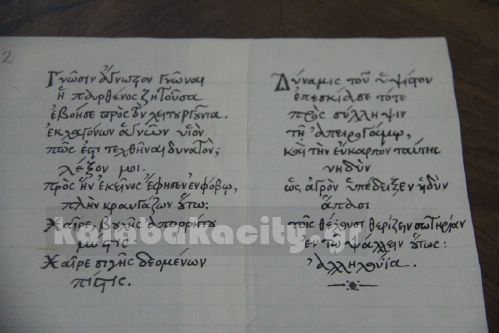 2
Γνῶσιν ἄγνωστον γνῶναι
ἡ παρθένος ζητοῦσα
ἐβόησε πρὸς τὸν λειτουργοῦντα.
ἐκ λαγόνων ἁγνῶν υἱὸν
πῶς ἐστι τεχθῆναι δυνατόν;
λέξον μοι.
πρὸς ἣν ἐκεῖνος ἔφησεν ἐν φόβῳ,
πλὴν κραυγάζων οὕτω:
Χαῖρε, βουλῆς ἀπορρήτου
μύστις
Χαῖρε σιγῆς δεομένων
πίστις.
Δύναμις τοῦ ὑψίστου
ἐπεσκίασε τότε
πρὸς σύλληψιν
τῇ ἀπειρογάμῳ,
καὶ τὴν εὔκαρπον ταύτης
νηδὺν
ὡς ἀγρὸν ὑπέδειξεν ἡδὺν
ἅπασι
τοῖς θέλουσι θερίζειν σωτηρίαν
ἐν τῷ ψάλλειν οὕτως:
Ἀλληλούϊα.
kalabakacity.gr